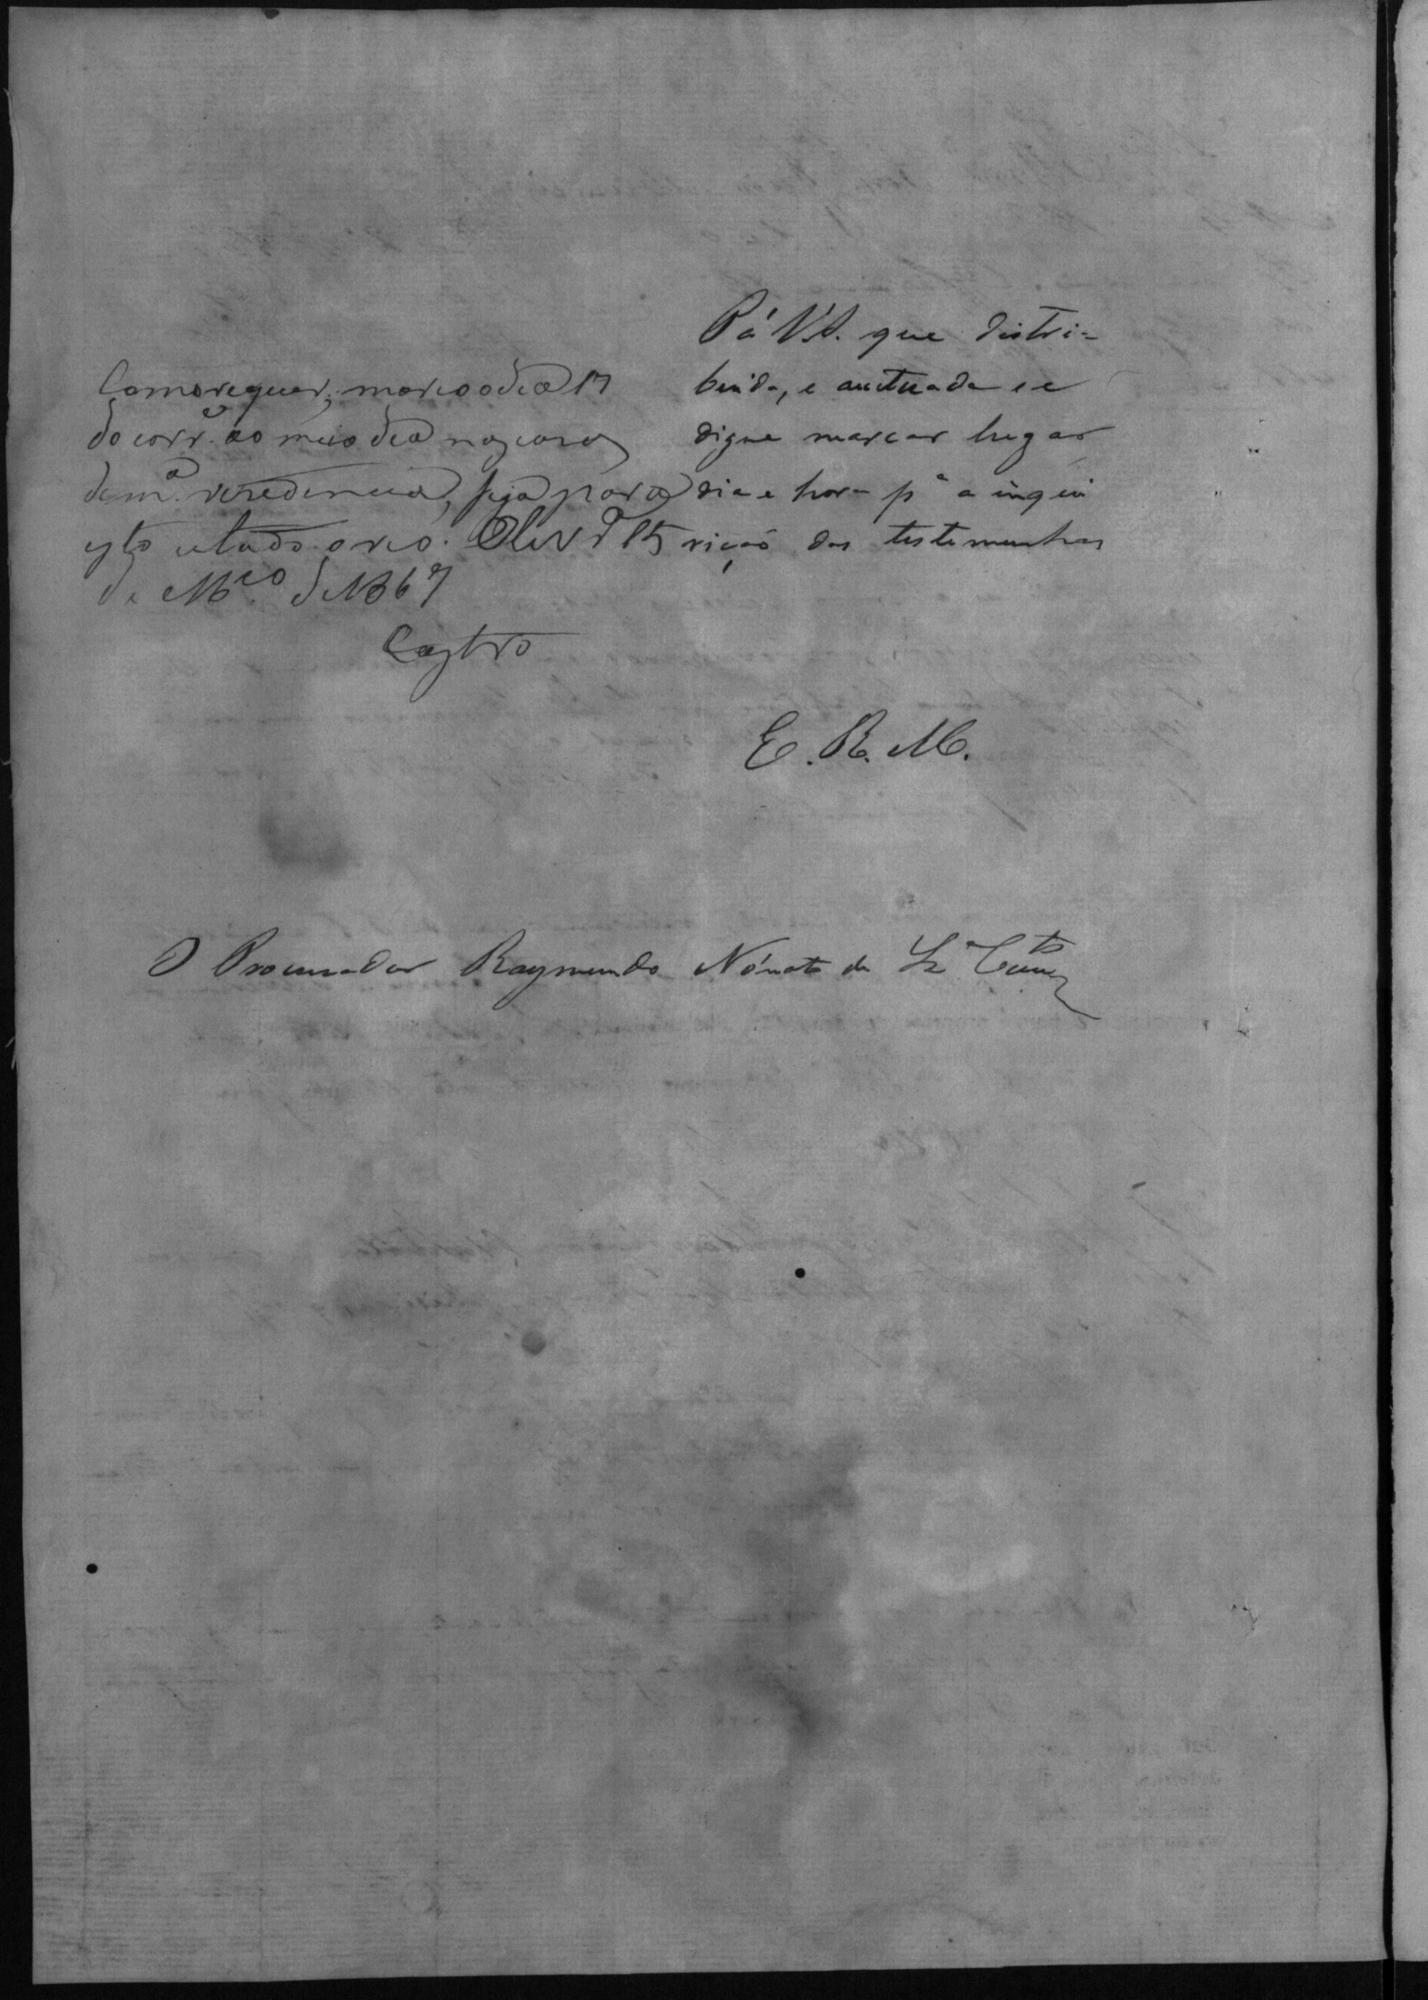 P. á V.S. que distri-
buida, e autuada se
digne marcar lugar
dia e hora pª a inqui
rição das testemunhas
Como requer; marco o dia 17
do corr.e ao meio dia na casa
de mª residencia, seja para
isto citado o réo. 15
de Mço de 1867
Castro
E. R. M.
O Procurador Raymundo Nónato da